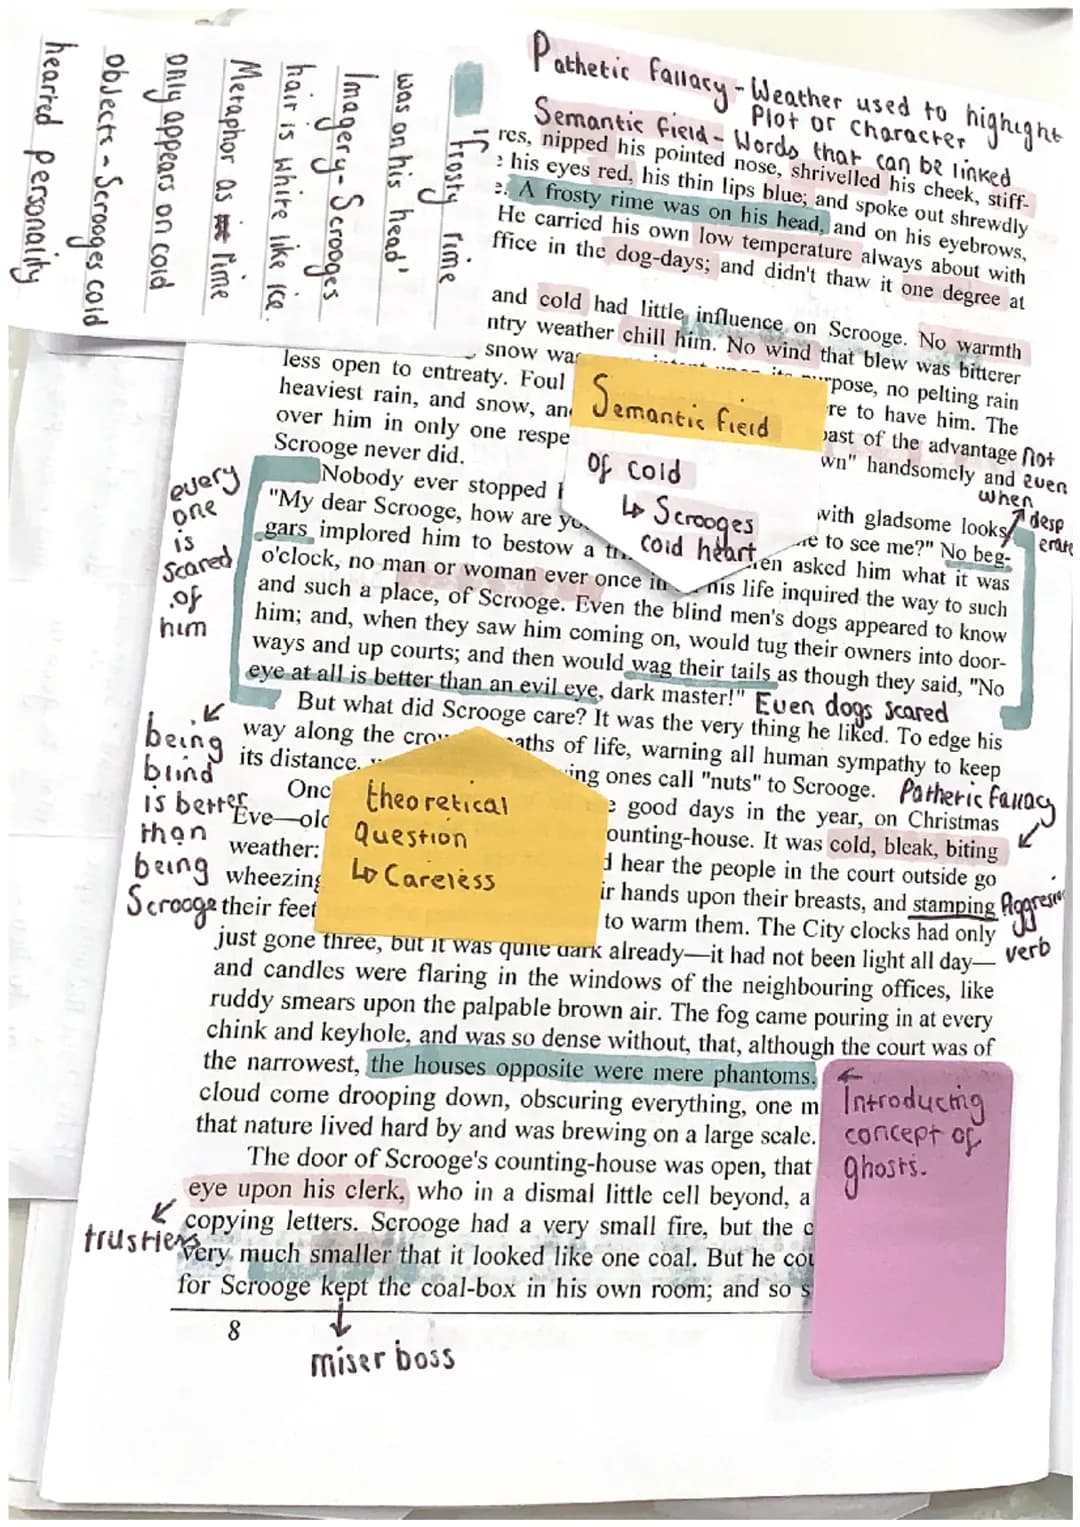 Pathetic fallacy - Weather used to highight
Plot or Character
Semantic field - Words that can be linked
"Frosty rime
was on his head'
Imagery - Scrooges
hair is white like ice.
Metaphor as rime
only appears on cold
objects - Scrooges cold
hearted personality
res, nipped his pointed nose, shrivelled his cheek, stiff-
his eyes red, his thin lips blue; and spoke out shrewdly
A frosty rime was on his head, and on his eyebrows,
He carried his own low temperature always about with
ffice in the dog-days; and didn't thaw it one degree at
and cold had little influence on Scrooge. No warmth
ntry weather chill him. No wind that blew was bitterer
snow was its purpose, no pelting rain
less open to entreaty. Foul re to have him. The
heaviest rain, and snow, an ast of the advantage
over him in only one respe wn" handsomely and
Scrooge never did.
Not
even
when
desp
erate
Semantic field
of cold
↳ Scrooges
cold heart
Nobody ever stopped with gladsome looks,
"My dear Scrooge, how are yo e to see me?" No beg-
gars implored him to bestow a tri ren asked him what it was
o'clock, no man or woman ever once in his life inquired the way to such
and such a place, of Scrooge. Even the blind men's dogs appeared to know
him; and, when they saw him coming on, would tug their owners into door-
ways and up courts; and then would wag their tails as though they said, "No
eye at all is better than an evil eye, dark master!"
Even dogs scared
every
one
is
scared
of
him
But what did Scrooge care? It was the very thing he liked. To edge his
way along the crow aths of life, warning all human sympathy to keep
its distance, ing ones call "nuts" to Scrooge.
being
blind
is better
than
being
Scrooge
theoretical
Question
↳ Careless
Pathetic fallacy
Onc e good days in the year, on Christmas
Eve—old ounting-house. It was cold, bleak, biting
weather: d hear the people in the court outside go
wheezing ir hands upon their breasts, and stamping
their feet to warm them. The City clocks had only
Aggresive
verb
just gone three, but it was quite dark already—it had not been light all day—
and candles were flaring in the windows of the neighbouring offices, like
ruddy smears upon the palpable brown air. The fog came pouring in at every
chink and keyhole, and was so dense without, that, although the court was of
the narrowest, the houses opposite were mere phantoms.
cloud come drooping down, obscuring everything, one m
that nature lived hard by and was brewing on a large scale.
Introducing
concept of
ghosts.
The door of Scrooge's counting-house was open, that
eye upon his clerk, who in a dismal little cell beyond, a
copying letters. Scrooge had a very small fire, but the c
very much smaller that it looked like one coal. But he cou
for Scrooge kept the coal-box in his own room; and so s
trustless
8
miser boss